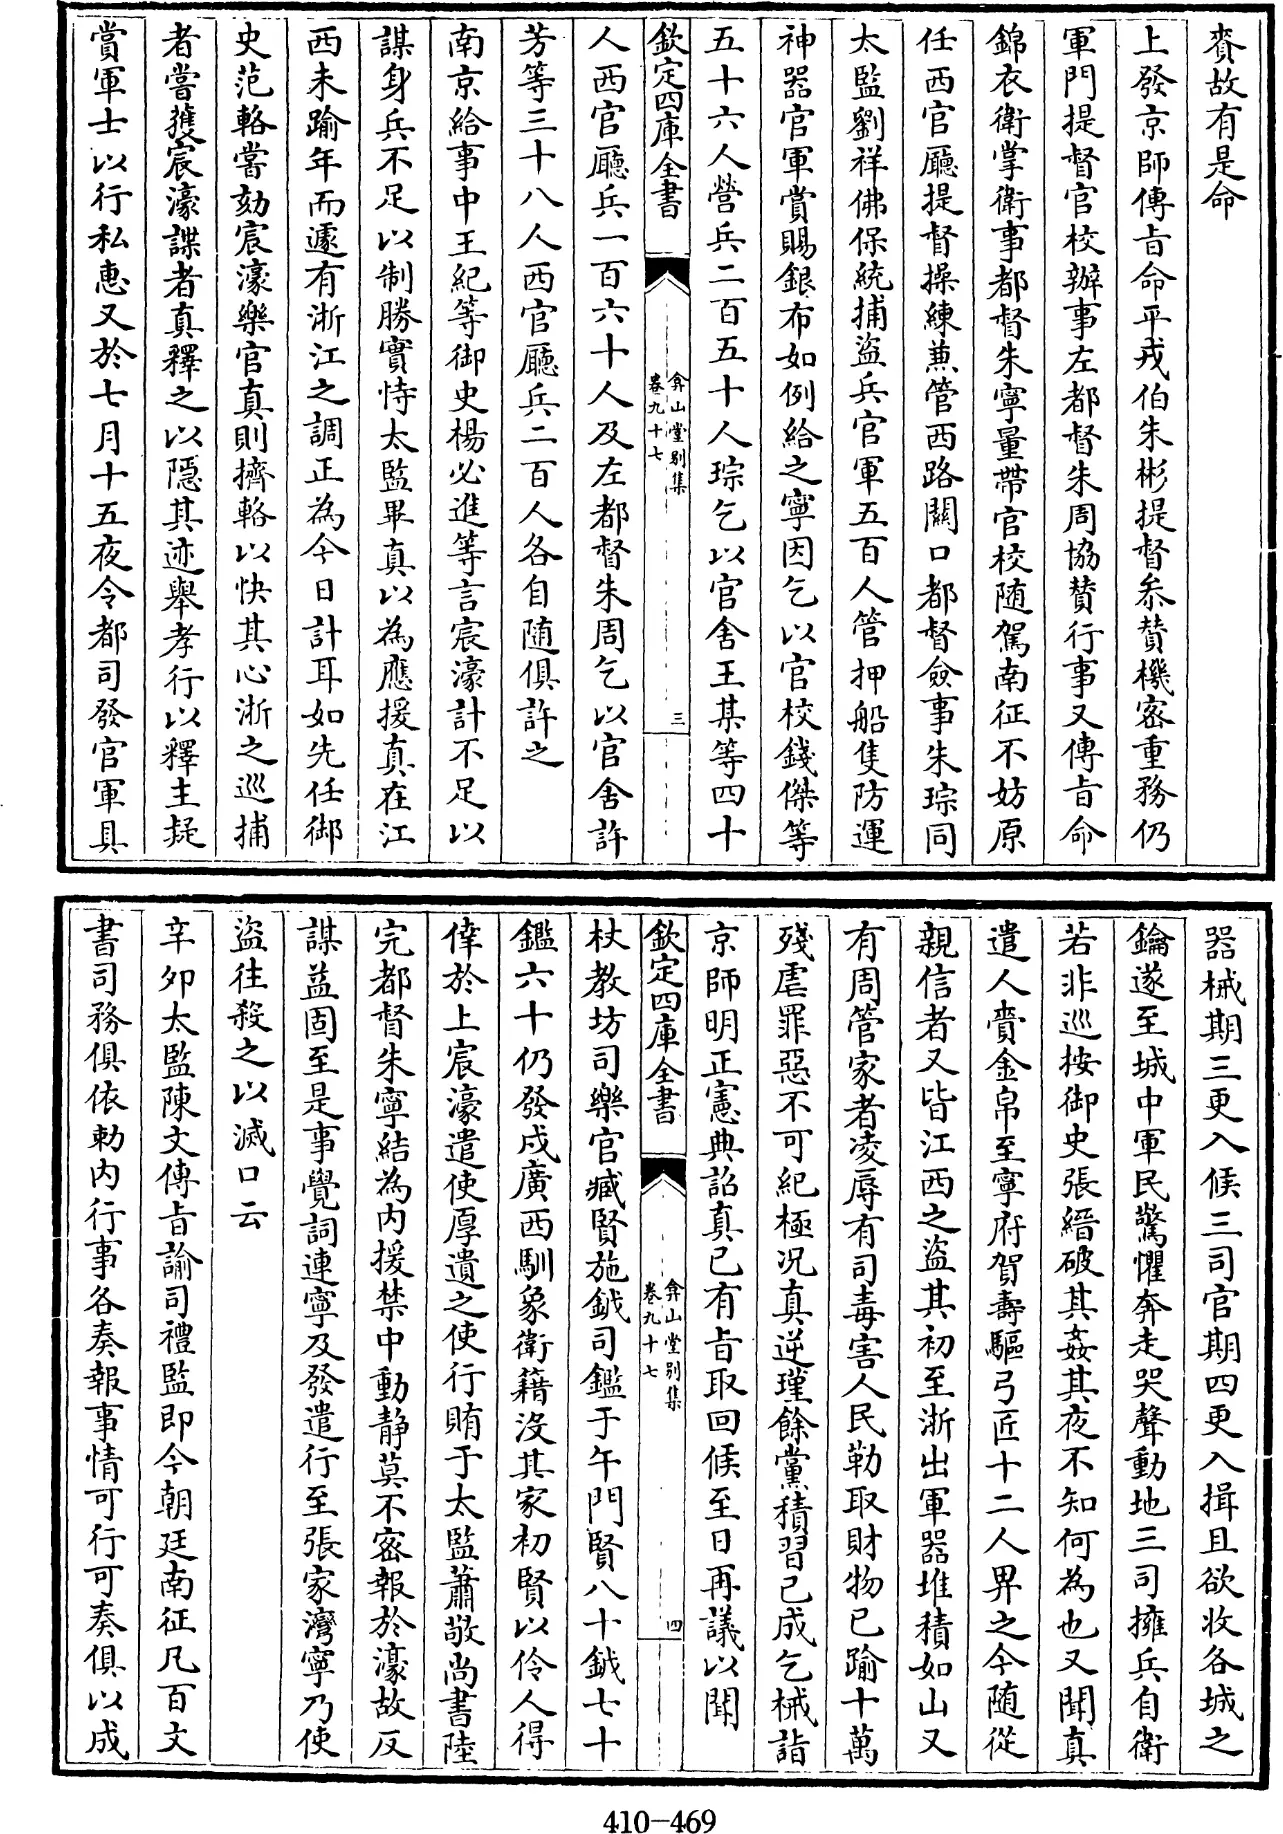 賚故有是命
上發京師傳旨命平戎伯朱彬提督叅賛機宻重務仍
軍門提督官校辦事左都督朱周協賛行事又傳旨命
錦衣衛掌衛事都督朱寧量帶官校随駕南征不妨原
任西官廳提督操練兼管西路關口都督僉事朱琮同
太監劉祥佛保統捕盗兵官軍五百人管押船隻防運
神器官軍賞賜銀布如例給之寧因乞以官校錢傑等
五十六人營兵二百五十人琮乞以官舍王某等四十
欽定四庫全書
弇山堂别集
卷九十七
三
人西官廳兵一百六十人及左都督朱周乞以官舍許
芳等三十八人西官廳兵二百人各自随俱許之
南京給事中王紀等御史楊必進等言宸濠計不足以
謀身兵不足以制勝實恃太監畢真以為應援真在江
西未踰年而遽有浙江之調正為今日計耳如先任御
史范輅嘗劾宸濠樂官真則擠輅以快其心浙之巡捕
者嘗獲宸濠諜者真釋之以隱其迹舉孝行以釋主疑
賞軍士以行私惠又於七月十五夜令都司發官軍具
器械期三更入候三司官期四更入揖且欲收各城之
鑰遂至城中軍民驚懼奔走哭聲動地三司擁兵自衛
若非巡按御史張縉破其姦其夜不知何為也又聞真
遣人賫金帛至寧府賀壽驅弓匠十二人畀之今随從
親信者又皆江西之盗其初至浙出軍器堆積如山又
有周管家者凌辱有司毒害人民勒取財物已踰十萬
殘虐罪惡不可紀極况真逆瑾餘黨積習已成乞械詣
京師明正憲典詔真已有旨取回候至日再議以聞
欽定四庫全書
弇山堂别集
卷九十七
四
杖教坊司樂官臧賢施鉞司鑑于午門賢八十鉞七十
鑑六十仍發戍廣西馴象衛籍没其家初賢以伶人得
倖於上宸濠遣使厚遺之使行賄于太監蕭敬尚書陸
完都督朱寧結為内援禁中動静莫不宻報於濠故反
謀益固至是事覺詞連寧及發遣行至張家灣寧乃使
盗往殺之以滅口云
辛夘太監陳文傳旨諭司禮監即今朝廷南征凡百文
書司務俱依勅内行事各奏報事情可行可奏俱以成
410-469